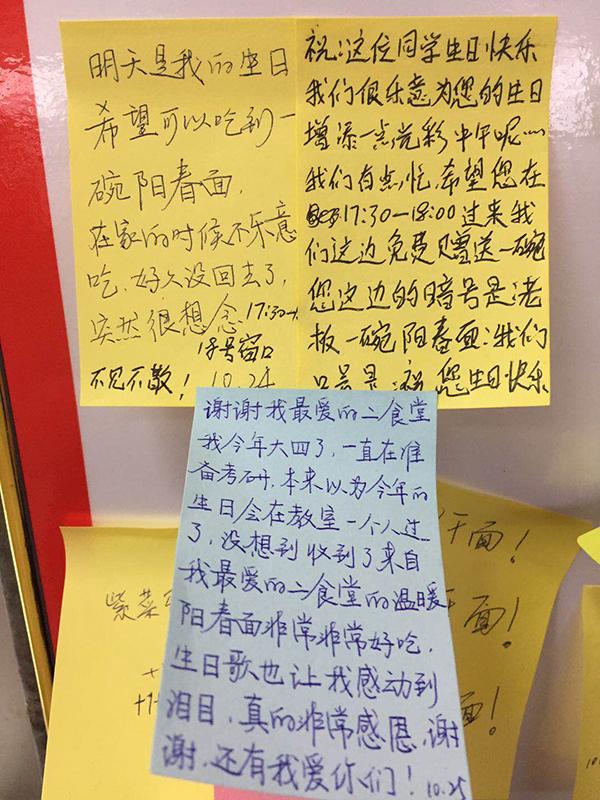 明天是我的生日
希望可以吃到一
碗阳春面,
在家的时候不乐意
吃,好久没回去了,
突然很想念
17:30~
18号窗口
不见不散! 10.24
祝:这位同学生日快乐
我们很乐意为您的生日
增添一点光彩中午呢…
我们有点忙,希望您在
17:30—18:00过来我
们这边免费赠送一碗
您这边的暗号是:老
板一碗阳春面:我们
口号是:祝您生日快乐
谢谢我最爱的二食堂
我今年大四了,一直在准
备考研,本来以为今年的
生日会在教室一个人过
了,没想到收到了来自
我最爱的二食堂的温暖,
阳春面非常非常好吃,
生日歌也让我感动到
泪目,真的非常感恩,谢
谢,还有我爱你们! 10.25
紫菜
干面!
面!
面!